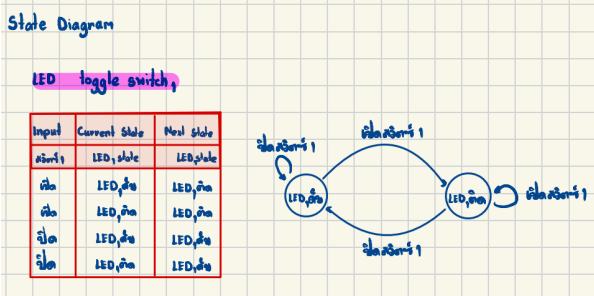 State Diagram
LED toggle switch,
Input Current State Next State
สวิตซ์ 1 LED, state LED, state
เปิด LED, ดับ LED, ติด
เปิด LED, ติด LED, ติด
ปิด LED, ดับ LED, ดับ
ปิด LED, ติด LED, ดับ
เปิดสวิตซ์ 1
ปิดสวิตซ์ 1
LED, ดับ LED, ติด
เปิดสวิตซ์ 1
ปิดสวิตซ์ 1